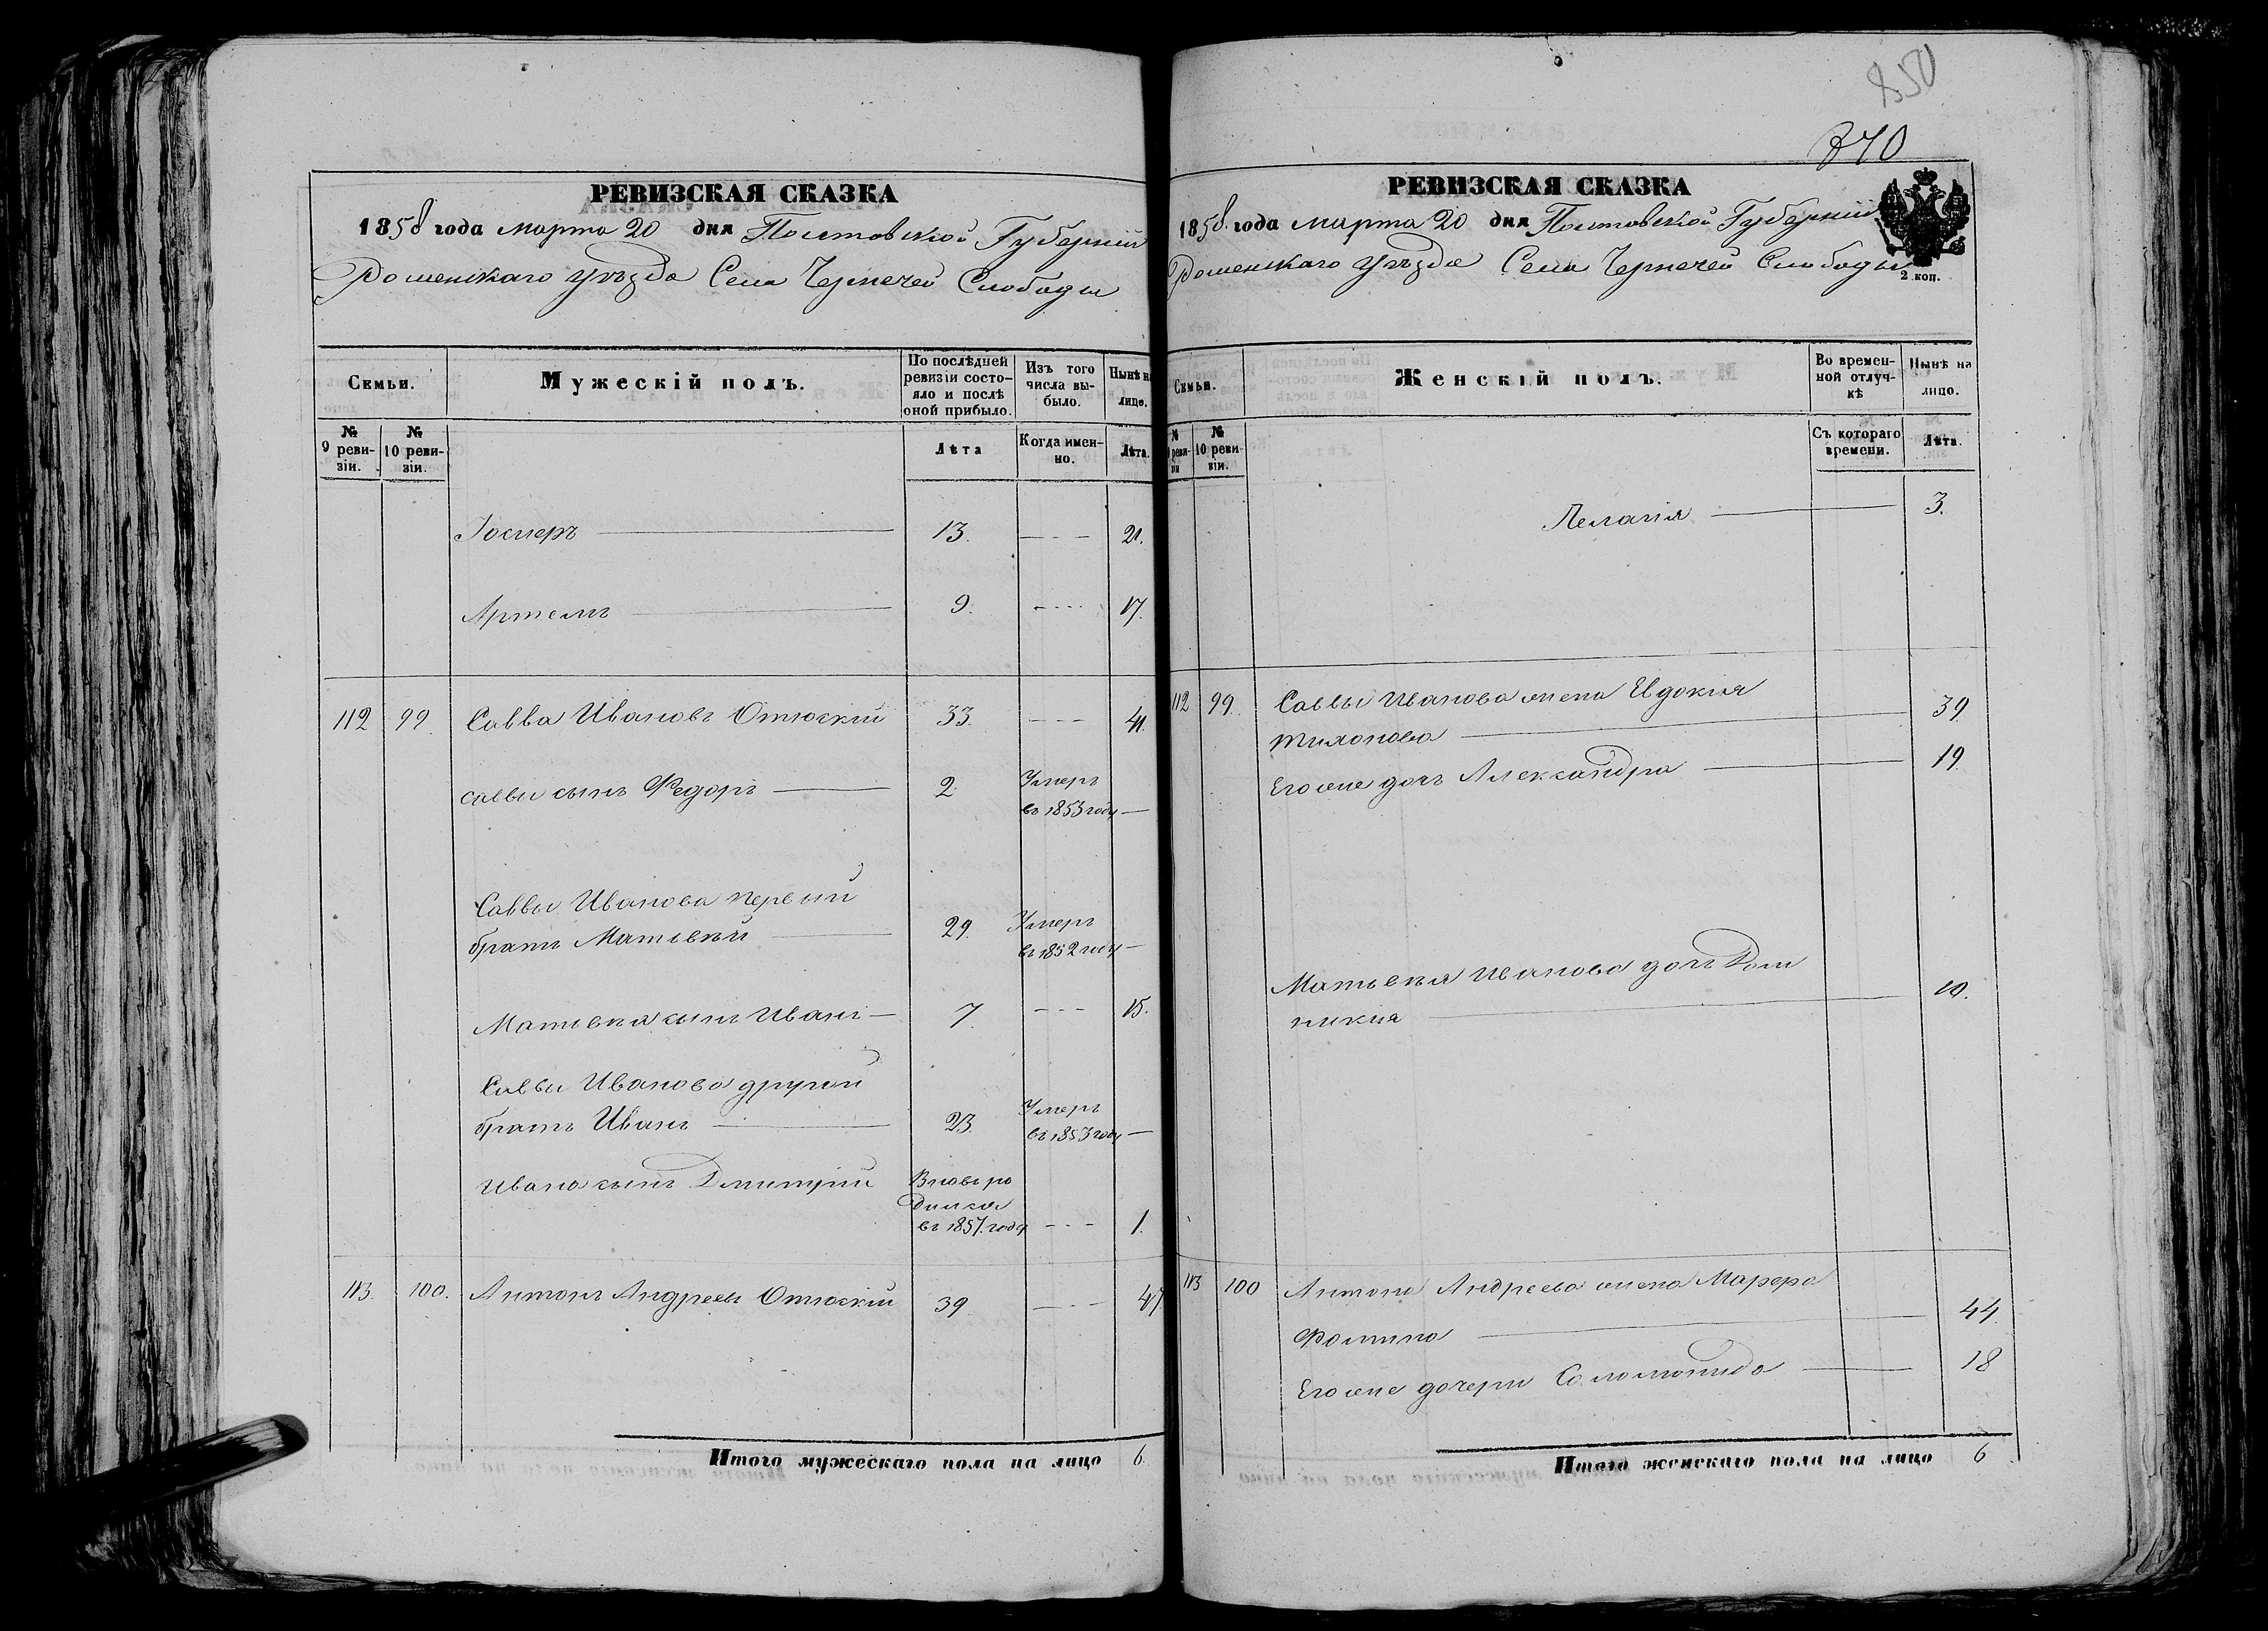 850
840
РЕВИЗСКАЯ СКАЗКА
1858 года марта 20 дня Полтовской Губерніи
Роменскаго уѣзда Села Чернечей Слободы
Семьи.
Мужескій полъ.
По послѣдней ревизіи состояло и послѣ оной прибыло.
Изъ того числа выбыло.
Нынѣ на лицо.
№ 9 ревизіи.
№ 10 ревизіи.
Лѣта
Когда именно.
Лѣта.
13. - - - 21.
Артемъ 9. - - - 17.
112 99. Савва Ивановъ Отюскій 33. - - - 41.
саввы сынъ Федоръ 2. Умеръ
въ 1853 году
Саввы Иванова первый
братъ Матвѣй 29. Умеръ
въ 1852 году
Матвѣя сынъ Иванъ 7. - - - 15.
Саввы Иванова другой
братъ Иванъ 23. Умеръ
въ 1853 году
Ивана сынъ Дмитрий Вновь ро
дился
въ 1857. году - - - 1.
113. 100. Антонъ Андреевъ Отюскій 39. - - - 47.
Итого мужескаго пола на лицо 6.
РЕВИЗСКАЯ СКАЗКА
1858. года марта 20 дня Полтовской Губерніи
Роменскаго уѣзда Села Чернечей Слободы
2 коп.
Семьи.
Женскій полъ.
Во временной отлучкѣ
Нынѣ на лицо.
№ 9 ревизіи
№ 10 ревизіи.
Съ котораго времени.
Лѣта.
Пелагія 3.
112 99. Саввы Иванова жена Евдокия
Тихонова 39
Его же дочь Александра 19.
Матвѣя Иванова дочь Дом
никия 10.
113 100 Антона Андреева жена Марфа
Фомина 44.
Его же дочери Соломонида 18
Итого женскаго пола на лицо 6